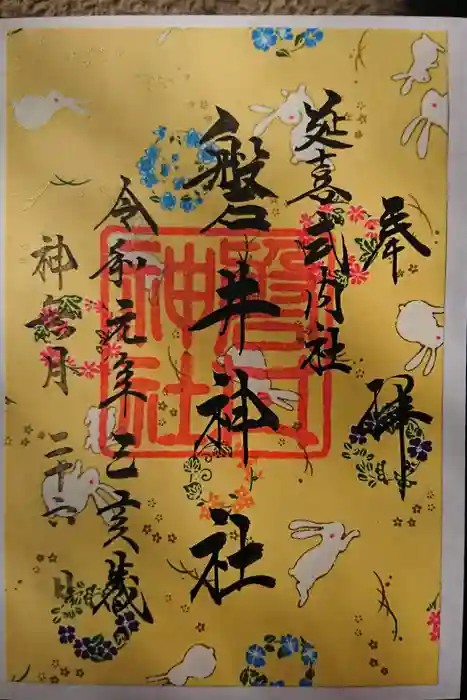 奉拝
延喜式内社
磐井神社
令和元年 己亥歳
神無月 二十六日
磐井
神社